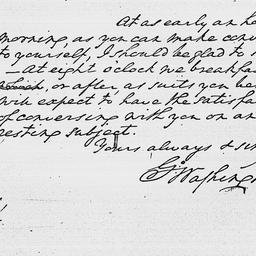 At as early an ho
morning, as you can make conve
to yourself, I should be glad to s
— At eight o'clock we breakfa
or after, as suits you be
will expect to have the satisfa
of conversing with you on an
resting subject.
Yours always & sin
G Washing